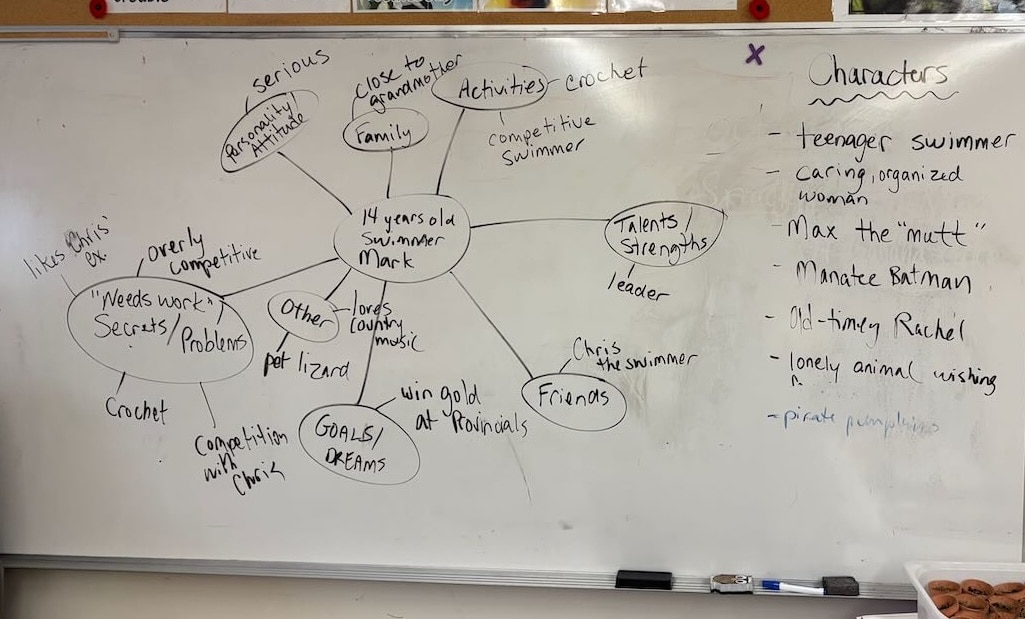 serious
Personality/
Attitude
close to
grandmother
Family
Activities
crochet
competitive
swimmer
14 years old
Swimmer
Mark
Talents/
Strengths
leader
likes Chris'
ex
overly
competitive
"Needs work"/
Secrets/
Problems
Crochet
Competition
with
Chris
Other
loves
country
music
pet lizard
GOALS/
DREAMS
win gold
at Provincials
Friends
Chris
the swimmer
X
Characters
- teenager swimmer
- caring, organized
woman
- Max the "mutt"
- Manatee Batman
- Old-timey Rachel
- lonely animal wishing
- pirate pumpkins